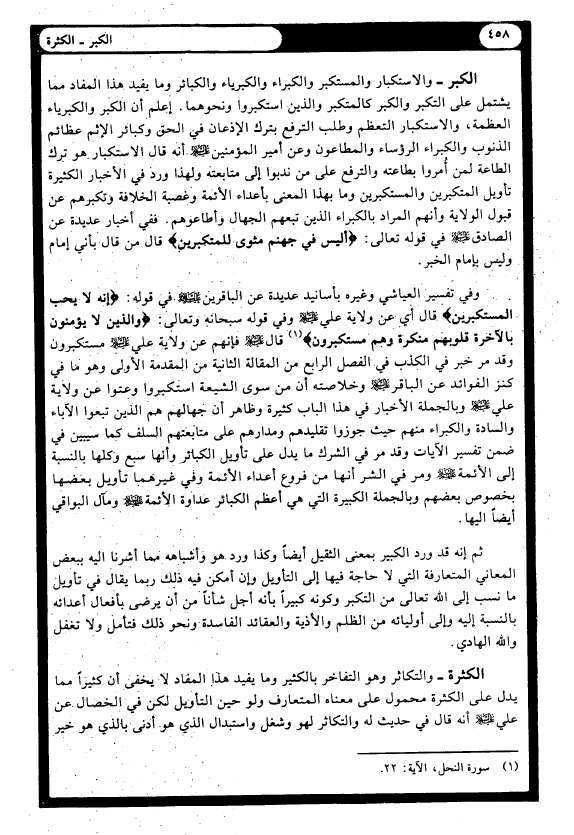 ٤٥٨
الكبر ـ الكثرة
الكبر ـ والاستكبار والمستكبر والكبراء والكبرياء والكبائر وما يفيد هذا المفاد مما
يشتمل على التكبر والكبر كالمتكبر والذين استكبروا ونحوهما. إعلم أن الكبر والكبرياء
العظمة، والاستكبار التعظم وطلب الترفع بترك الإذعان في الحق وكبائر الإثم عظائم
الذنوب والكبراء الرؤساء والمطاعون وعن أمير المؤمنين ﷺ أنه قال الاستكبار هو ترك
الطاعة لمن أُمروا بطاعته والترفع على من ندبوا إلى متابعته ولهذا ورد في الأخبار الكثيرة
تأويل المتكبرين والمستكبرين وما بهذا المعنى بأعداء الأئمة وغصبة الخلافة وتكبرهم عن
قبول الولاية وأنهم المراد بالكبراء الذين تبعهم الجهال وأطاعوهم. ففي أخبار عديدة عن
الصادق ﷺ في قوله تعالى: ﴿أليس في جهنم مثوى للمتكبرين﴾ قال من قال بأني إمام
وليس بإمام الخبر.
وفي تفسير العياشي وغيره بأسانيد عديدة عن الباقرين ﷺ في قوله: ﴿إنه لا يحب
المستكبرين﴾ قال أي عن ولاية علي ﷺ وفي قوله سبحانه وتعالى: ﴿والذين لا يؤمنون
بالآخرة قلوبهم منكرة وهم مستكبرون﴾(١) قال ﷺ فإنهم عن ولاية علي ﷺ مستكبرون
وقد مر خبر في الكذب في الفصل الرابع من المقالة الثانية من المقدمة الأولى وهو ما في
كنز الفوائد عن الباقر ﷺ وخلاصته أن من سوى الشيعة استكبروا وعتوا عن ولاية
علي ﷺ وبالجملة الأخبار في هذا الباب كثيرة وظاهر أن جهالهم هم الذين تبعوا الآباء
والسادة والكبراء منهم حيث جوزوا تقليدهم ومدارهم على متابعتهم السلف كما سيبين في
ضمن تفسير الآيات وقد مر في الشرك ما يدل على تأويل الكبائر وأنها سبع وكلها بالنسبة
إلى الأئمة ﷺ ومر في الشر أنها من فروع أعداء الأئمة وفي غيرهما تأويل بعضها
بخصوص بعضهم وبالجملة الكبيرة التي هي أعظم الكبائر عداوة الأئمة ﷺ ومآل البواقي
أيضاً اليها.
ثم إنه قد ورد الكبير بمعنى الثقيل أيضاً وكذا ورد هو وأشباهه مما أشرنا اليه ببعض
المعاني المتعارفة التي لا حاجة فيها إلى التأويل وإن أمكن فيه ذلك ربما يقال في تأويل
ما نسب إلى الله تعالى من التكبر وكونه كبيراً بأنه أجل شأناً من أن يرضى بأفعال أعدائه
بالنسبة إليه وإلى أوليائه من الظلم والأذية والعقائد الفاسدة ونحو ذلك فتأمل ولا تغفل
والله الهادي.
الكثرة ـ والتكاثر وهو التفاخر بالكثير وما يفيد هذا المفاد لا يخفى أن كثيراً مما
يدل على الكثرة محمول على معناه المتعارف ولو حين التأويل لكن في الخصال عن
علي ﷺ أنه قال في حديث له والتكاثر لهو وشغل واستبدال الذي هو أدنى بالذي هو خير
(١) سورة النحل، الآية: ٢٢.